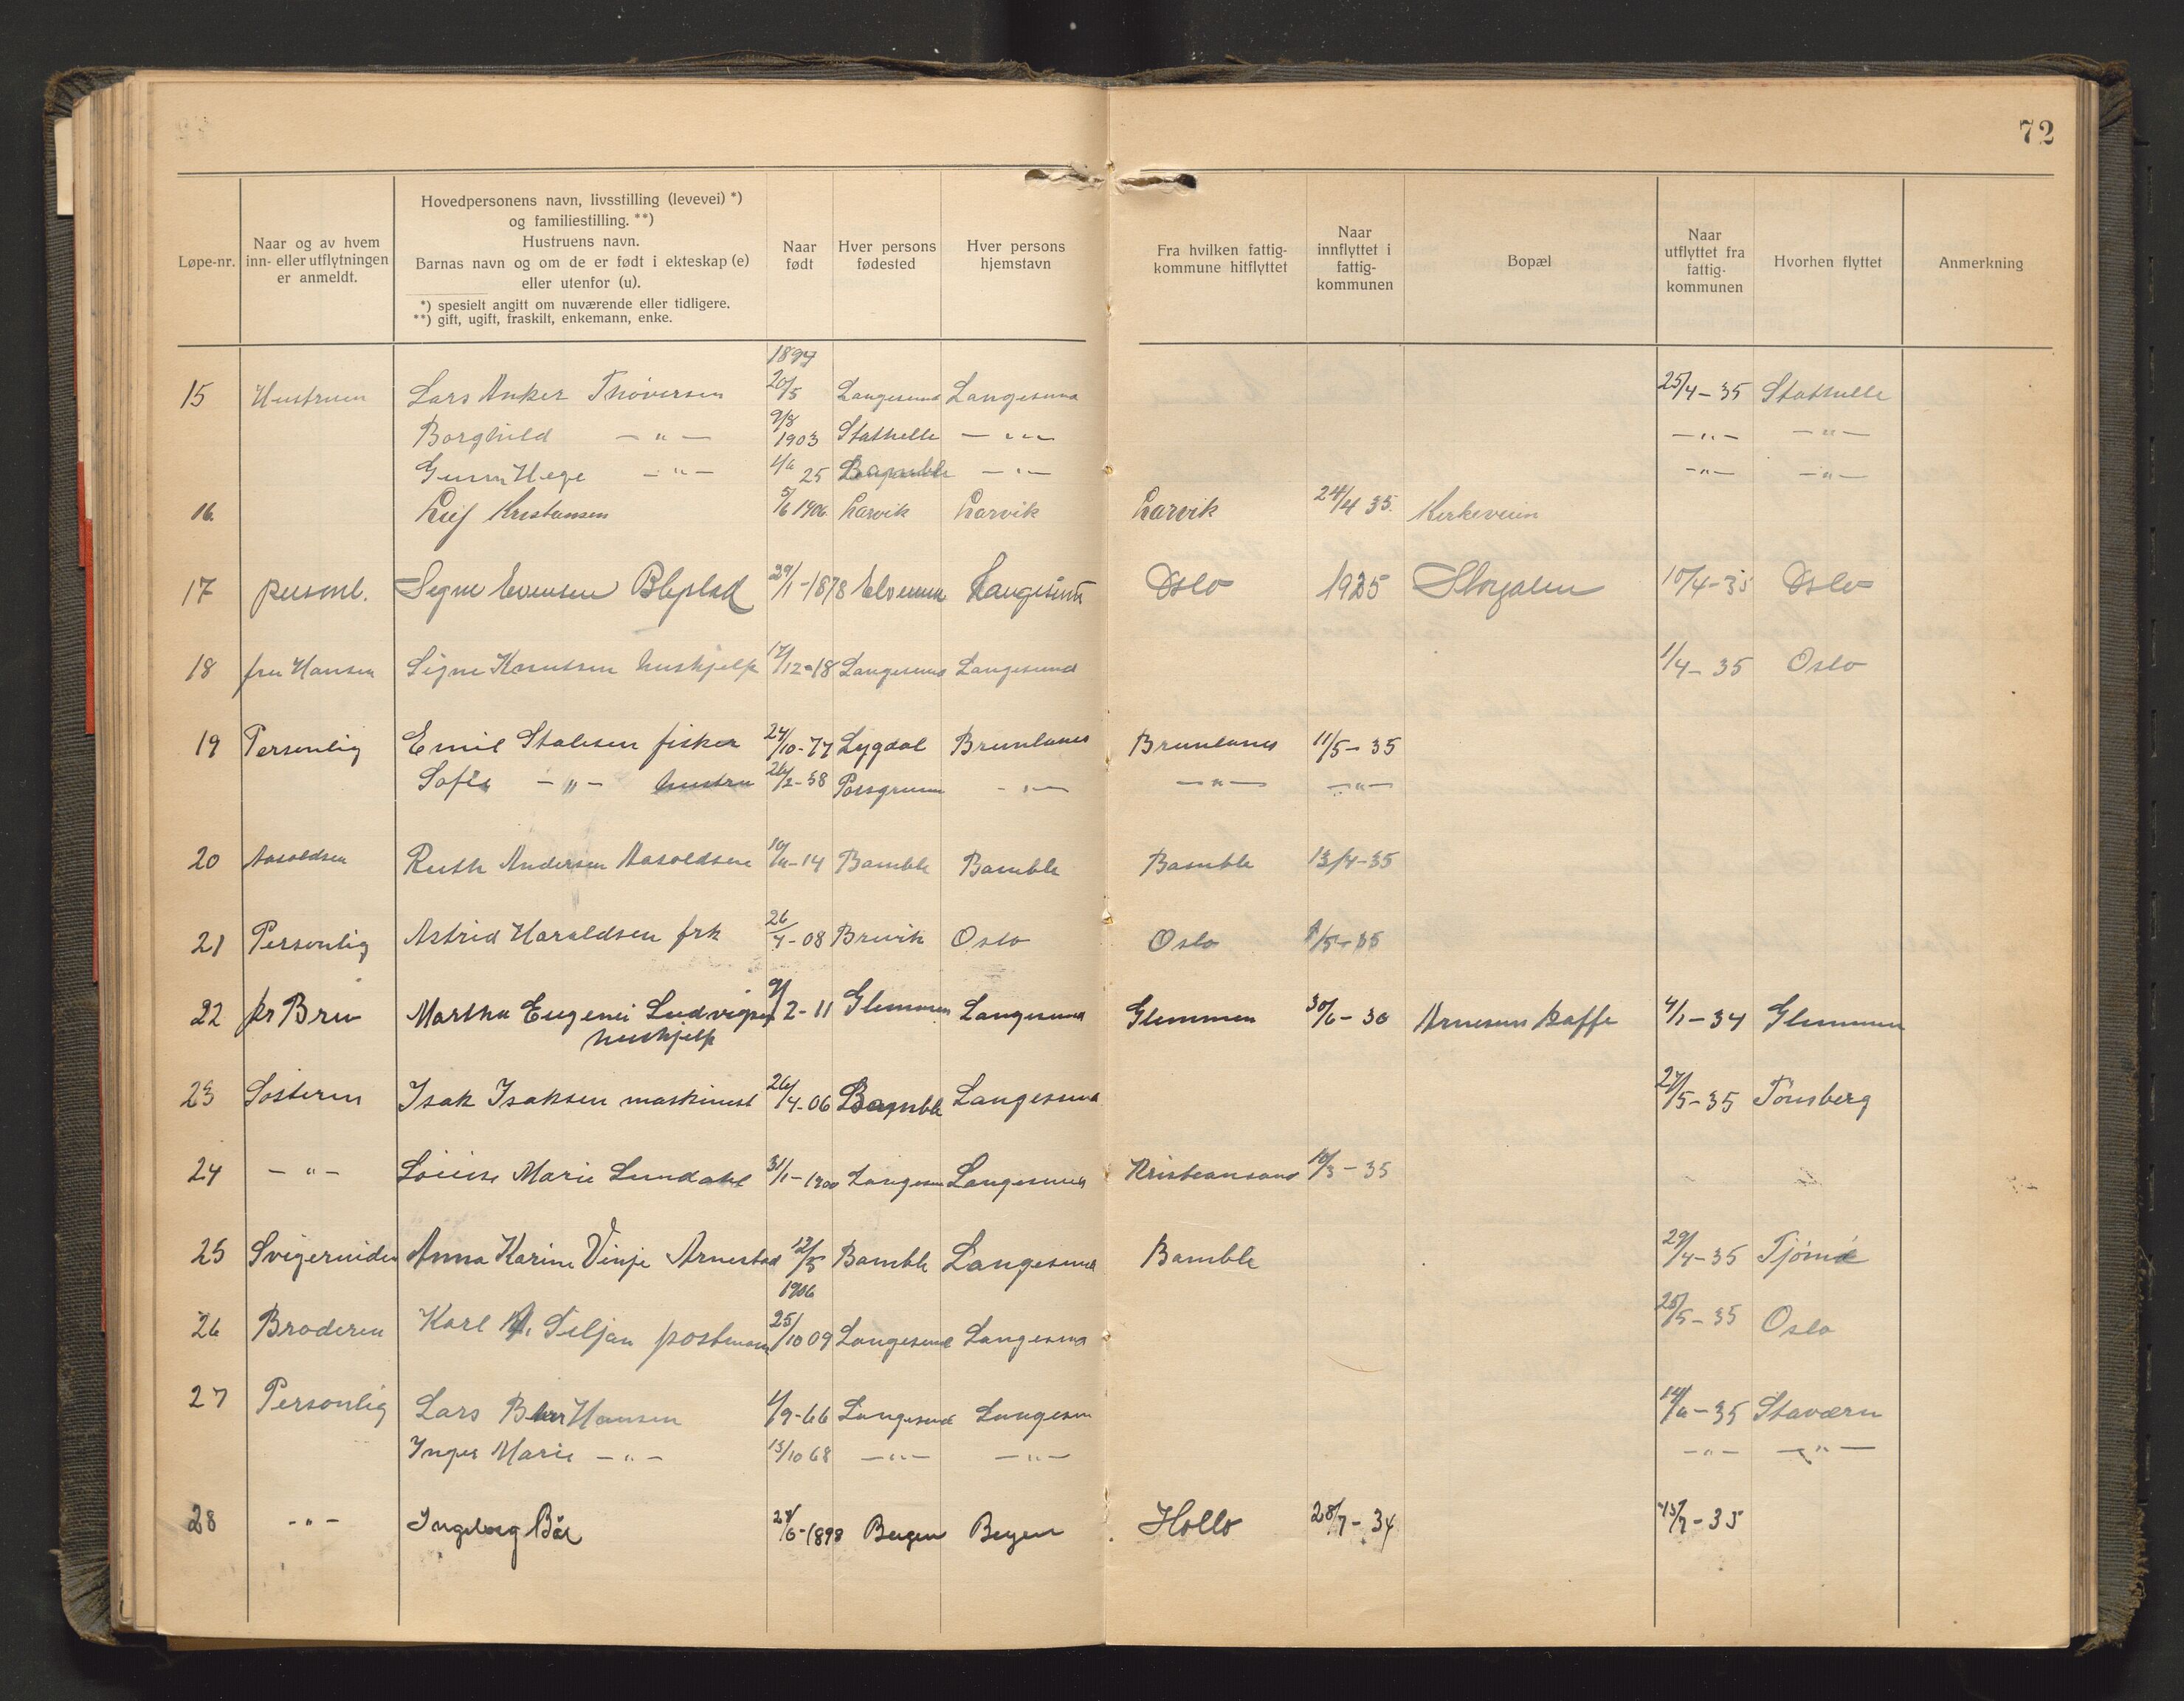 72
Løpe-nr.
Naar og av hvem
inn- eller utflytningen
er anmeldt.
Hovedpersonens navn, livsstilling (levevei) *)
og familiestilling. **)
Hustruens navn.
Barnas navn og om de er født i ekteskap (e)
eller utenfor (u).
*) spesielt angitt om nuværende eller tidligere.
**) gift, ugift, fraskilt, enkemann, enke.
Naar
født
Hver persons
fødested
Hver persons
hjemstavn
Fra hvilken fattig-
kommune hitflyttet
Naar
innflyttet i
fattig-
kommunen
Bopæl
Naar
utflyttet fra
fattig-
kommunen
Hvorhen flyttet
Anmerkning
1897
15 Hustruen Lars Anker Thoversen 20/5 Langesund Langesund 25/4-35 Stathelle
Borghild -"- 9/8 1903 Stathelle -"- -"- -"-
Gunn Hege -"- 25 Bamble -"- -"- -"-
16. Leif Kristiansen 5/6 1906 Larvik Larvik Larvik 24/4 35. Kirkeveien
17 personl. Signe Evensen 29/1-1878 Elverum Langesund Oslo 1925 Storgaten 10/4-35 Oslo
18 fru Hansen Signe Knutsen huskjelp 17/12-18 Langesund Langesund 1/4-35 Oslo
19 Personlig Emil Stalesen fisker 24/10-77 Lygdal Brunlanes Brunlanes 11/5-35
Sofie -"- hustru 26/2-58 Porsgrunn -"- -"- -"-
20 Aasoldsen Ruth Andersen Aasoldsen 14 Bamble Bamble Bamble 13/4-35
21 Personlig Astrid Haraldsen frk 26/7-08 Brevik Oslo Oslo 1/5-35
22 pr Brev Martha Eugenie Ludvigsen 9/2-11 Glemmen Langesund Glemmen 30/6-30 Arnesens kaffe 4/1-34 Glemmen
huskjelp
23 Søsteren Isak Isaksen maskinist 26/4-06 Bamble Langesund 27/5-35 Tønsberg
24 -"- Louise Marie Lundahl 31/1-1900 Langesund Langesund Kristiansand 10/3-35
25 Svigerinden Anna Karine Vinje Arnestad 12/5 Bamble Langesund Bamble 29/4-35 Tjøme
1906
26 Broderen Karl A. Seljan postmann 25/10 09 Langesund Langesund 25/5-35 Oslo
27 Personlig Lars Behr Hansen 4/9-66 Langesund Langesund 14/6-35 Staværn
Inger Marie -"- 13/10 68 -"- -"- -"- -"-
28 -"- Ingeborg Bår 1898 Bergen Bergen Hollo 28/7-34 15/7-35